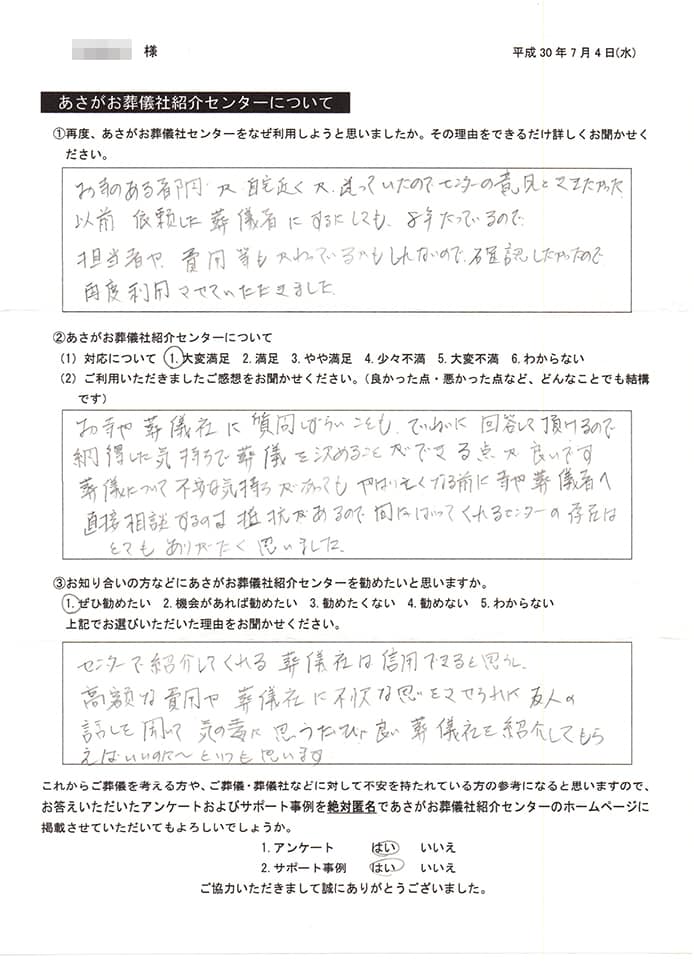 様
平成30年7月4日(水)
あさがお葬儀社紹介センターについて
①再度、あさがお葬儀社センターをなぜ利用しようと思いましたか。その理由をできるだけ詳しくお聞かせく
ださい。
お寺のある場所が自宅近くが、迷っていたのでセンターの意見をききたかった
以前 依頼した葬儀者にするにしても、8年たっているので、
担当者や、費用等もかわっているかもしれないので、確認したかったので
再度利用させていただきました。
②あさがお葬儀社紹介センターについて
(1) 対応について 1.大変満足 2.満足 3.やや満足 4.少々不満 5.大変不満 6.わからない
(2) ご利用いただきましたご感想をお聞かせください。(良かった点・悪かった点など、どんなことでも結構
です)
お寺や葬儀社に質問しずらいことも、ていねいに回答して頂けるので
納得した気持ちで葬儀を決めることができる点が良いです
葬儀について不安な気持ちがあっても やはり亡くなる前に寺や葬儀者へ
直接相談するのは抵抗があるので間にはいってくれるセンターの存在は
とてもありがたく思いました。
③お知り合いの方などにあさがお葬儀社紹介センターを勧めたいと思いますか。
1.ぜひ勧めたい 2.機会があれば勧めたい 3.勧めたくない 4.勧めない 5.わからない
上記でお選びいただいた理由をお聞かせください。
センターで紹介してくれる葬儀社は信用できると思うし、
高額な費用や葬儀社に不快な思いをさせられた友人の
話しを聞いて気の毒に思うたびに良い葬儀社を紹介してもら
えばいいのに〜といつも思います
これからご葬儀を考える方や、ご葬儀・葬儀社などに対して不安を持たれている方の参考になると思いますので、
お答えいただいたアンケートおよびサポート事例を絶対匿名であさがお葬儀社紹介センターのホームページに
掲載させていただいてもよろしいでしょうか。
1.アンケート はい いいえ
2.サポート事例 はい いいえ
ご協力いただきまして誠にありがとうございました。